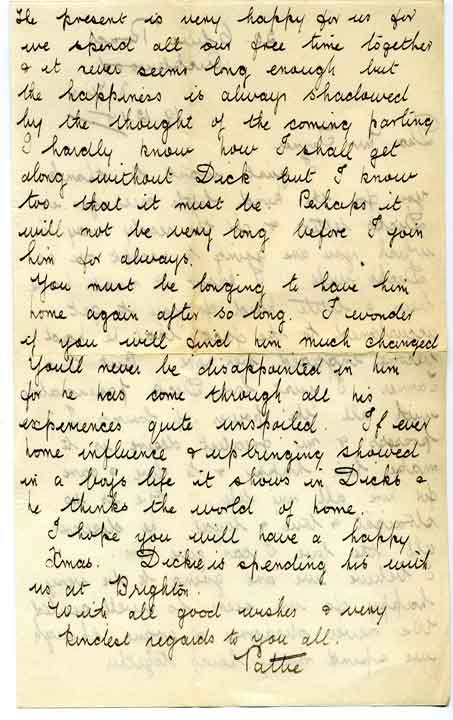 The present is very happy for us for
we spend all our free time together
& it never seems long enough but
the happiness is always shadowed
by the thought of the coming parting
I hardly know how I shall get
along without Dick but I know
too that it must be. Perhaps it
will not be very long before I join
him for always.
You must be longing to have him
home again after so long. I wonder
if you will find him much changed
You'll never be disappointed in him
for he has come through all his
experiences quite unspoiled. If ever
home influence & upbringing showed
in a boys life it shows in Dicks &
he thinks the world of home.
I hope you will have a happy
Xmas. Dickie is spending his with
us at Brighton.
With all good wishes & very
kindest regards to you all.
Pattie